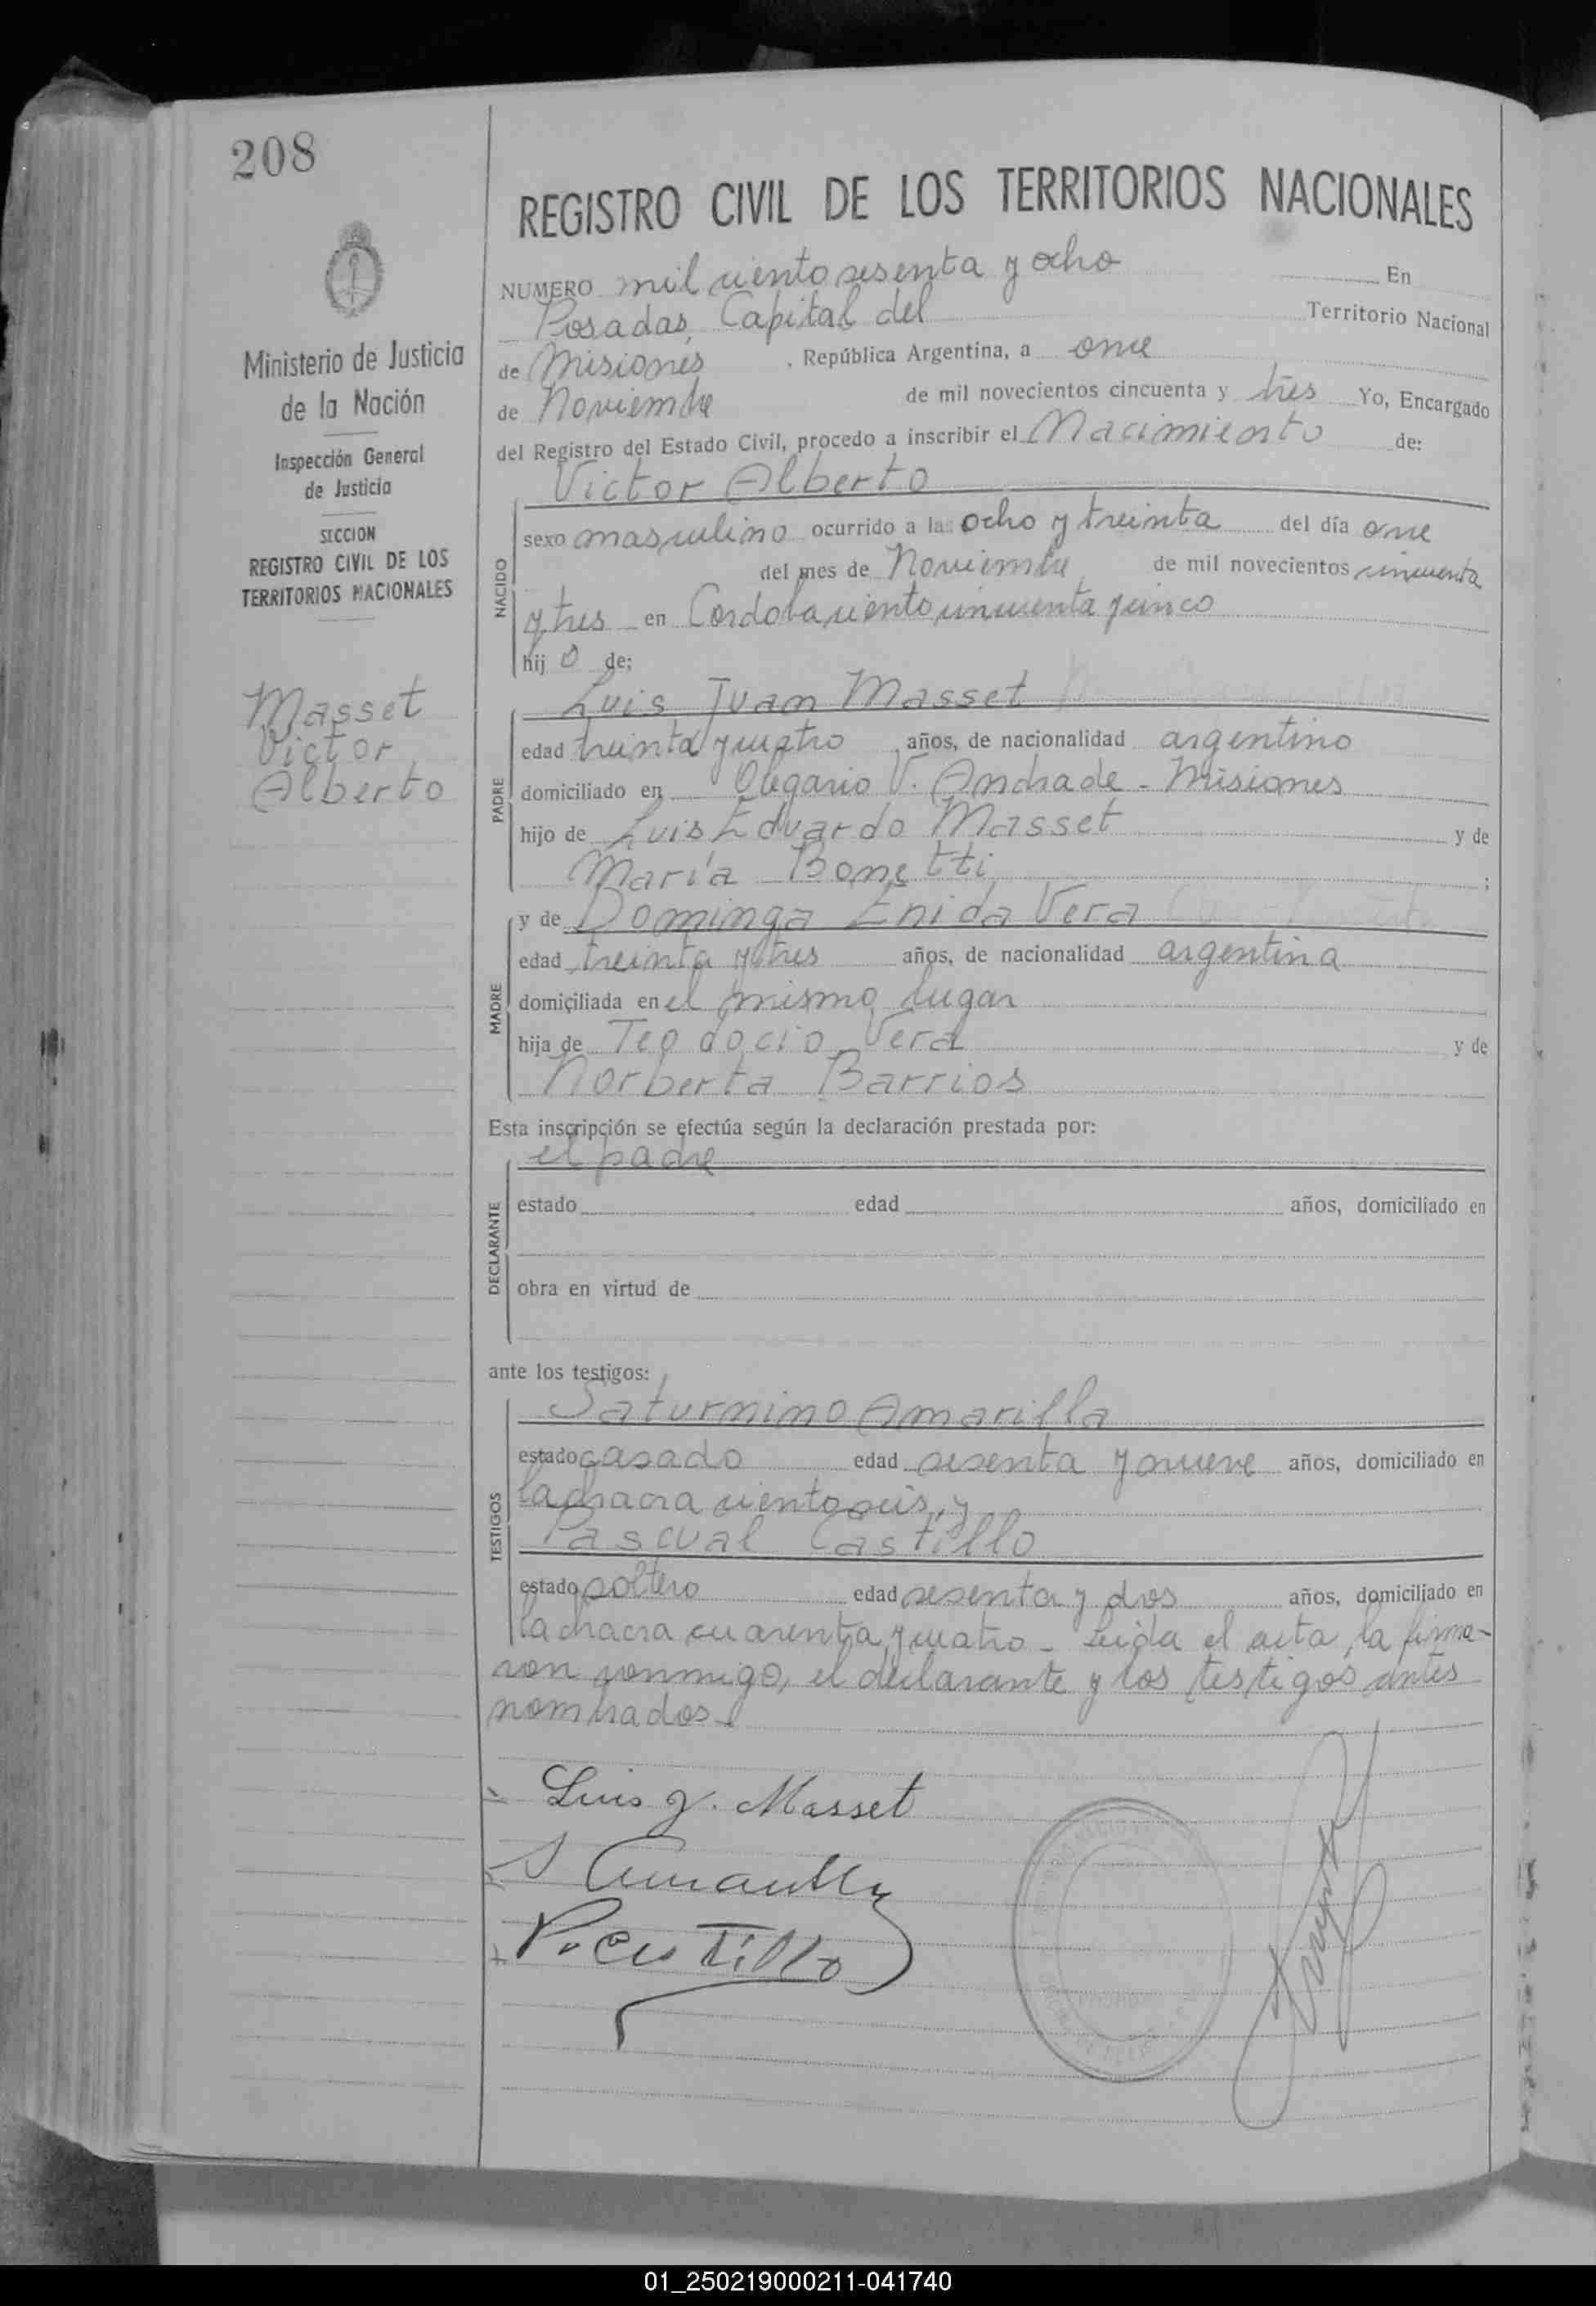 208
REGISTRO CIVIL DE LOS TERRITORIOS NACIONALES
Ministerio de Justicia
de la Nación
Inspección General
de Justicia
SECCION
REGISTRO CIVIL DE LOS
TERRITORIOS NACIONALES
Masset
Victor
Alberto
NUMERO mil ciento sesenta y ocho En
Posadas, Capital del Territorio Nacional
de Misiones, República Argentina, a once
de Noviembre de mil novecientos cincuenta y tres Yo, Encargado
del Registro del Estado Civil, procedo a inscribir el Nacimiento de:
Victor Alberto
NACIDO
sexo masculino ocurrido a las ocho y treinta del día once
del mes de Noviembre de mil novecientos cincuenta
y tres en Cordoba ciento cincuenta y cinco
hijo de:
Luis Juan Masset
PADRE
edad treinta y cuatro años, de nacionalidad argentino
domiciliado en Olegario V. Andrade - Misiones
hijo de Luis Eduardo Masset y de
María Bonetti;
y de Dominga Enida Vera
MADRE
edad treinta y tres años, de nacionalidad argentina
domiciliada en el mismo lugar
hija de Teodocio Vera y de
Norberta Barrios
Esta inscripción se efectúa según la declaración prestada por:
el padre
DECLARANTE
estado edad años, domiciliado en
obra en virtud de
ante los testigos:
Saturnino Amarilla
TESTIGOS
estado casado edad sesenta y nueve años, domiciliado en
la chacra ciento seis, y
Pascual Castillo
estado soltero edad sesenta y dos años, domiciliado en
la chacra cuarenta y cuatro - Leída el acta, la firma-
ron conmigo, el declarante y los testigos antes
nombrados.-
Luis J. Masset
S Amarilla
P. Castillo
01_250219000211-041740